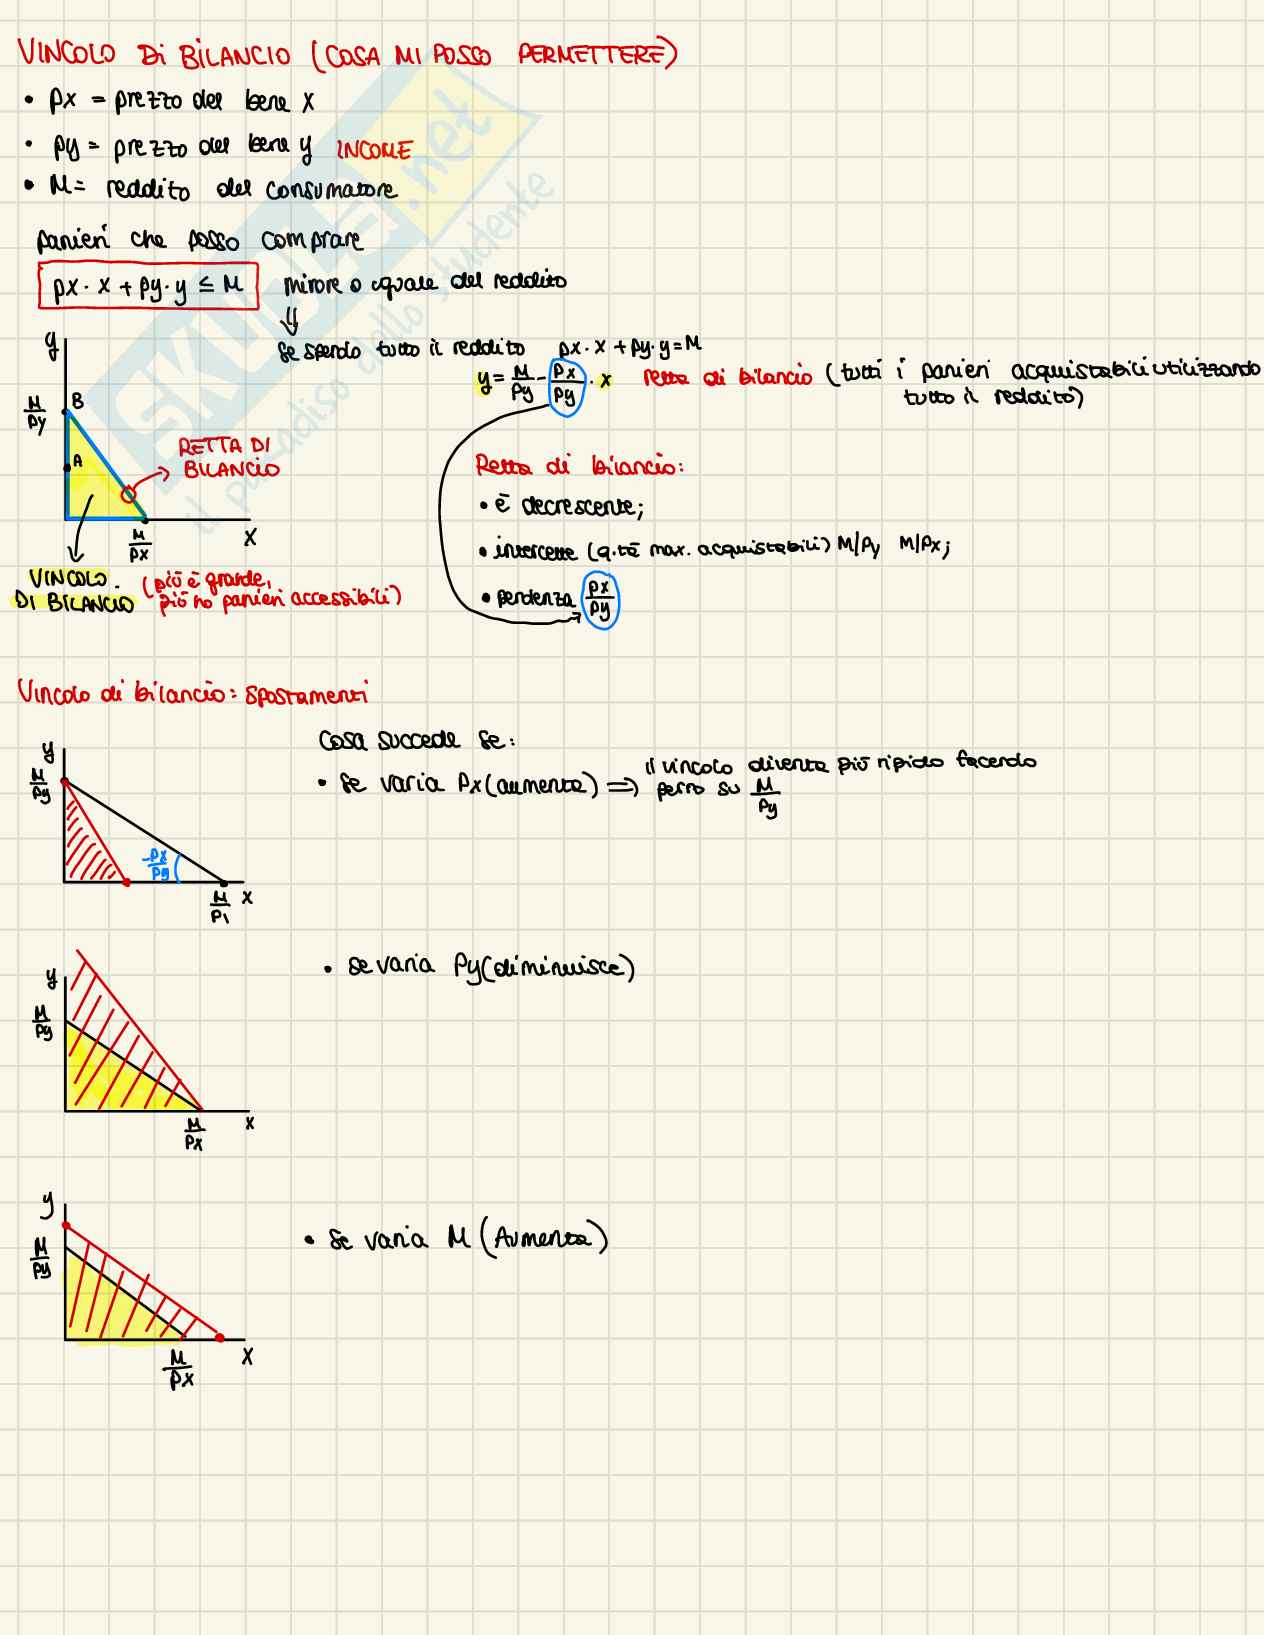 VINCOLO Di BILANCIO (COSA MI POSSO PERMETTERE)
• px = prezzo del bene x
• py = prezzo del bene y INCOME
• M = reddito del consumatore
panieri che posso comprare
px · x + py · y ≤ M minore o uguale del reddito
⇓
Se spendo tutto il reddito px · x + py · y = M
y = M/py - px/py · x retta di bilancio (tutti i panieri acquistabili utilizzando
tutto il reddito)
y
M/py
B
A
RETTA DI
BILANCIO
M/px
x
VINCOLO
DI BILANCIO
(più è grande,
più ho panieri accessibili)
Retta di bilancio:
• è decrescente;
• intercette (q.tà max. acquistabili) M/py M/px;
• pendenza px/py
Vincolo di bilancio: spostamenti
Cosa succede se:
• se varia Px (aumenta) ⇒ il vincolo diventa più ripido facendo
perno su M/py
y
M/py
-px/py
M/p1
x
• se varia Py (diminuisce)
y
M/py
M/px
x
• Se varia M (Aumenta)
y
M/py
M/px
x
SKUOLA.net
il paradiso dello studente